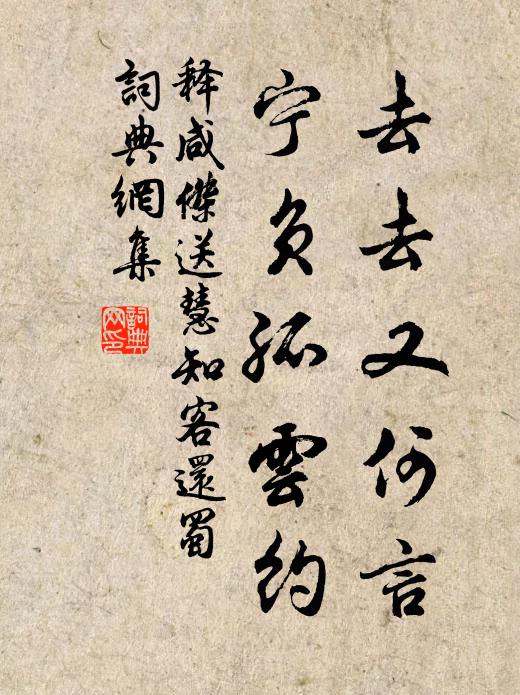 去去又何言
宁负孤雲约
释咸傑送慧知客還蜀
詞典網集
詞典网印